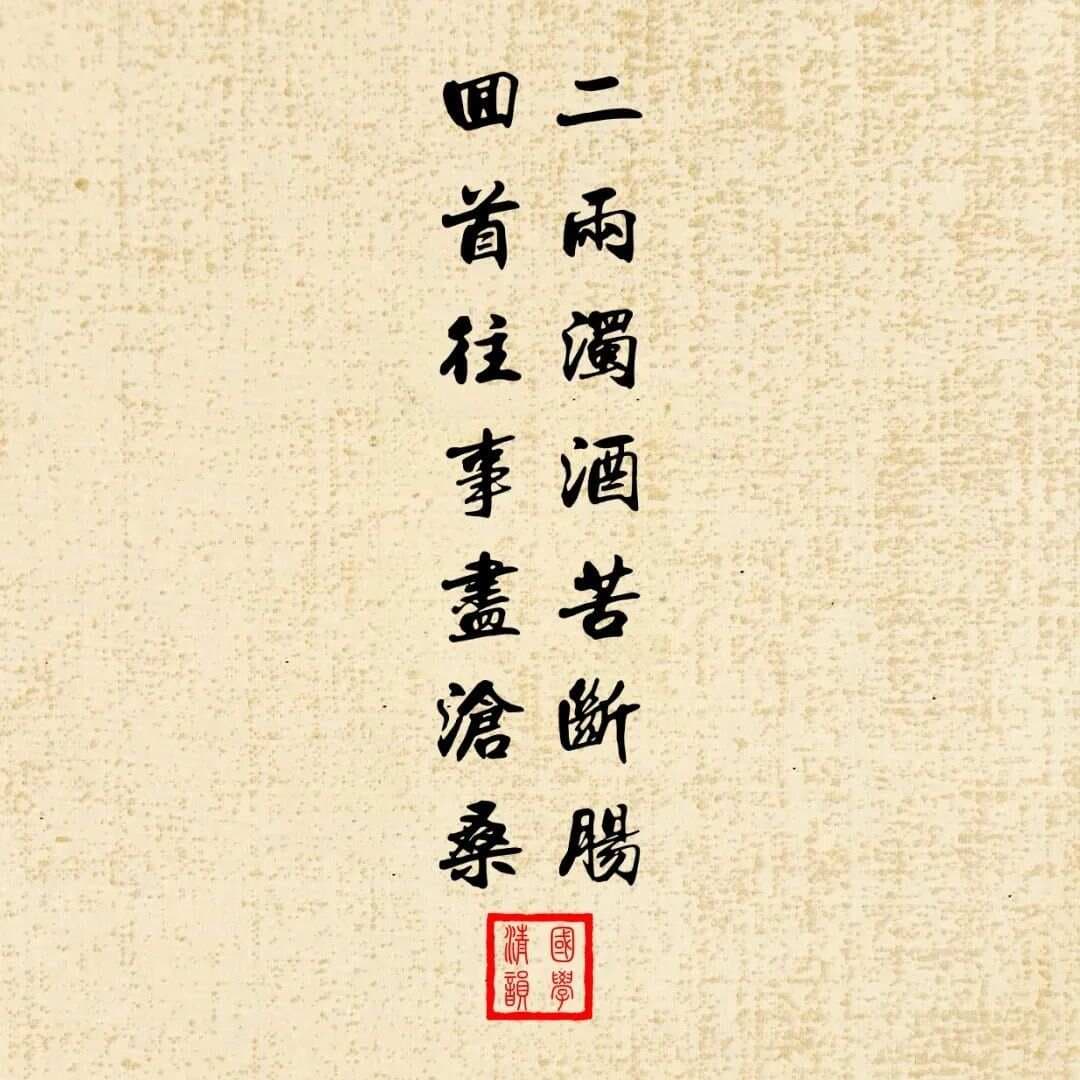 二兩濁酒苦斷腸
回首往事盡滄桑
國學
清韻